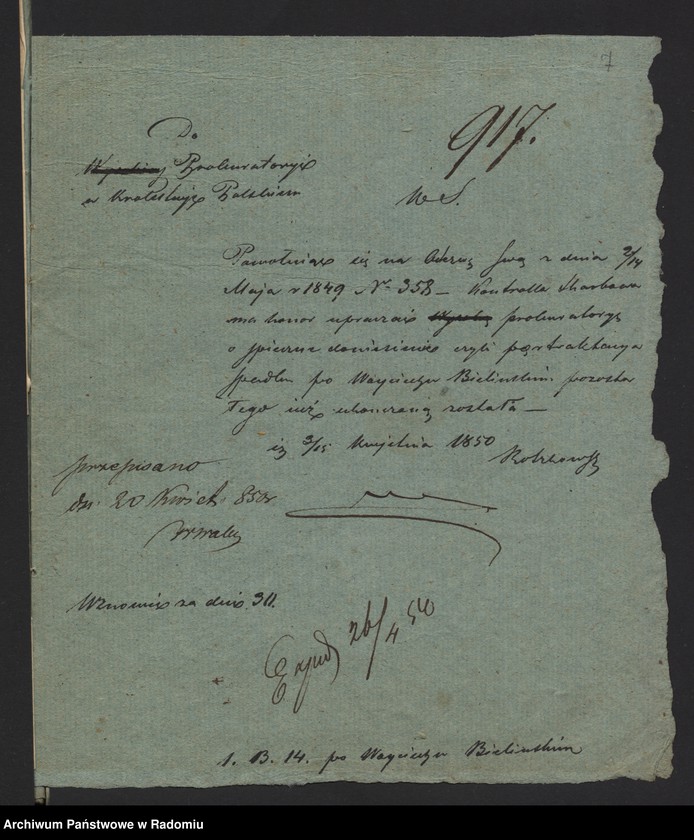 7
Do
917.
Prokuratoryi
w Królestwie Polskiem
W S.
Powołując się na Odezwę swą z dnia 2/14
Maja r 1849 Nr 358 – Kontrolla Skarbowa
ma honor upraszać prokuratoryę
o spieszne doniesienie czyli pertraktacya
spadku po Wojciechu Bielińskim pozosta
łego już ukończoną została –
3/15 Kwietnia 1850
przepisano
dn. 20 Kwiet. 850r
Wznowić za dni 30.
Exped 26/4 50
1. B. 14. po Wojciechu Bielińskim
Archiwum Państwowe w Radomiu